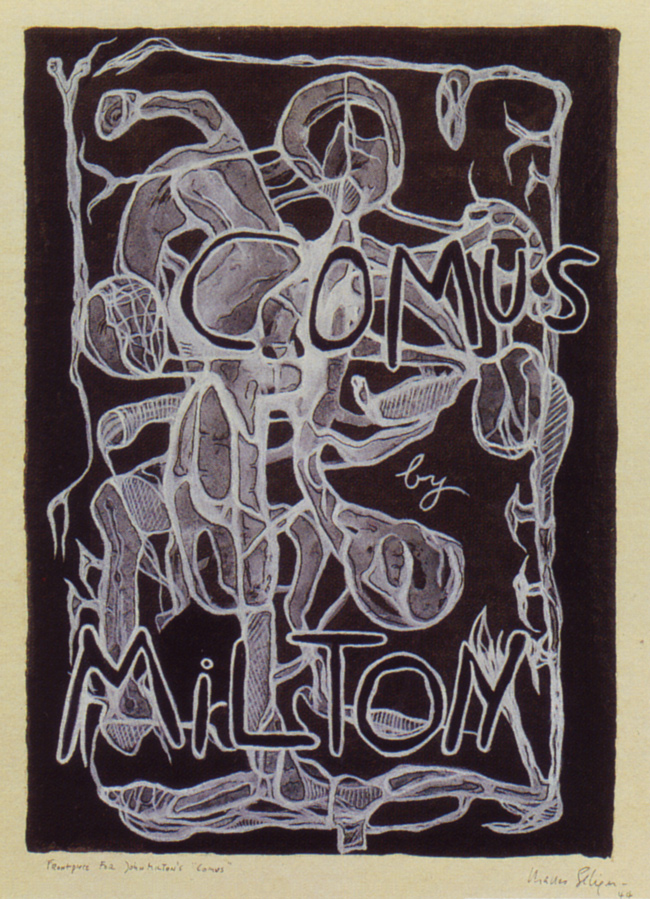 COMUS
by
MiLTON
Frontispiece For John Milton's "Comus"
Charles Seliger - 44